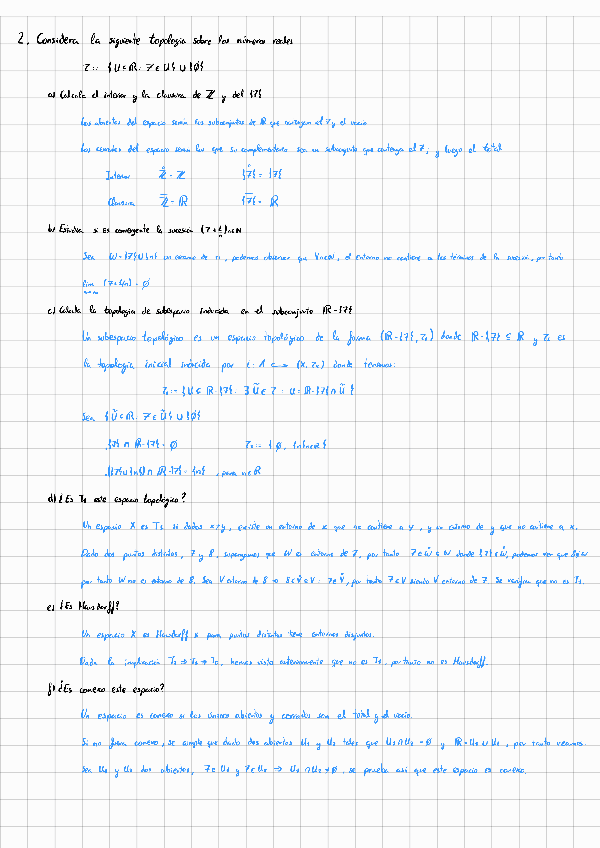 2. Considera la siguiente topología sobre los números reales
τ := {U ⊂ ℝ : 7 ∈ U} ∪ {∅}
a) Calcula el interior y la clausura de ℤ y del {7}
Los abiertos del espacio serán los subconjuntos de ℝ que contengan el 7 y el vacío
Los cerrados del espacio serán los que su complementario sea un subconjunto que contenga el 7, y luego el total
Interior ℤ̊ = ℤ {7}̊ = {7}
Clausura ℤ̅ = ℝ {7}̅ = ℝ
b) Estudia si es convergente la sucesión (7+1/n)n∈ℕ
Sea W = {7}∪{n} un entorno de n, podemos observar que ∀n∈ℕ, el entorno no contiene a los términos de la sucesión, por tanto
lim (7+1/n) = ∅
c) Calcula la topología de subespacio inducida en el subconjunto ℝ-{7}
Un subespacio topológico es un espacio topológico de la forma (ℝ-{7}, τ) donde ℝ-{7} ⊆ ℝ y τ es
la topología inicial inducida por i: A ↪ (X, τ) donde tenemos:
τ := {U ⊆ ℝ-{7} : ∃ Ũ ∈ τ : U = ℝ-{7} ∩ Ũ}
Sea {Ũ ⊂ ℝ : 7 ∈ Ũ} ∪ {∅}
{7} ∩ ℝ-{7} = ∅ τ := {∅, {n} n∈ℝ}
({7}∪{n}) ∩ ℝ-{7} = {n}, para n∈ℝ
d) ¿Es T₁ este espacio topológico?
Un espacio X es T₁ si dados x≠y, existe un entorno de x que no contiene a y, y un entorno de y que no contiene a x.
Dado dos puntos distintos, 7 y 8, supongamos que W es entorno de 7, por tanto 7∈W̊⊂W donde {7}∈W̊, podemos ver que 8∉W
por tanto W no es entorno de 8. Sea V entorno de 8 → 8∈V̊⊂V : 7∈V̊, por tanto 7∈V siendo V entorno de 7. Se verifica que no es T₁.
e) ¿Es Hausdorff?
Un espacio X es Hausdorff si para puntos distintos tiene entornos disjuntos.
Dada la implicación T₂ ⇒ T₁ ⇒ T₀, hemos visto anteriormente que no es T₁, por tanto no es Hausdorff.
f) ¿Es conexo este espacio?
Un espacio es conexo si los únicos abiertos y cerrados son el total y el vacío.
Si no fuera conexo, se cumple que dado dos abiertos U₁ y U₂ tales que U₁∩U₂ = ∅ y ℝ = U₁∪U₂, por tanto veamos.
Sea U₁ y U₂ dos abiertos, 7∈U₁ y 7∈U₂ → U₁∩U₂ ≠ ∅, se prueba así que este espacio es conexo.